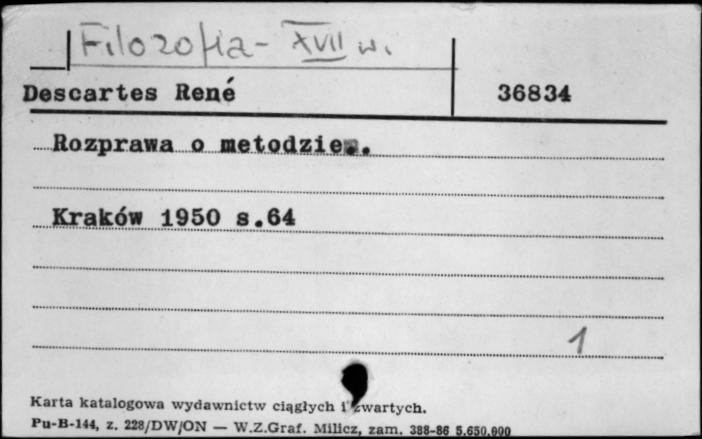 Filozofia - XVII w.
Descartes René 36834
Rozprawa o metodzie..
Kraków 1950 s.64
1
Karta katalogowa wydawnictw ciągłych i zwartych.
Pu-B-144, z. 228/DW/ON — W.Z.Graf. Milicz, zam. 388-86 5.650.000